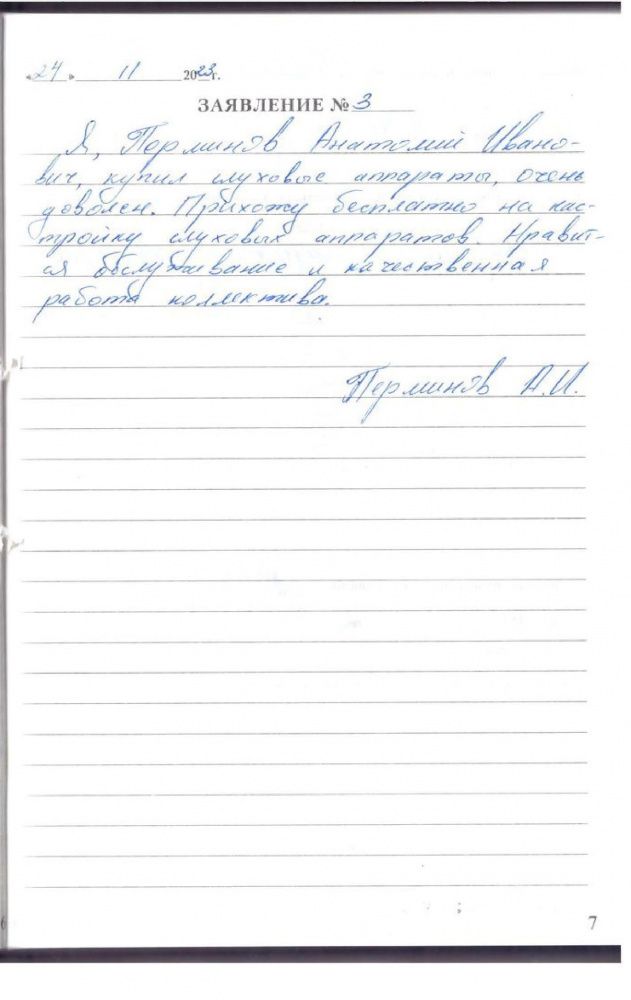 «24» 11 2023г.
ЗАЯВЛЕНИЕ № 3
Я, Перминов Анатолий Ивано-
вич, купил слуховые аппараты, очень
доволен. Прихожу бесплатно на нас-
тройку слуховых аппаратов. Нравит-
ся обслуживание и качественная
работа коллектива.
Перминов А.И.
7